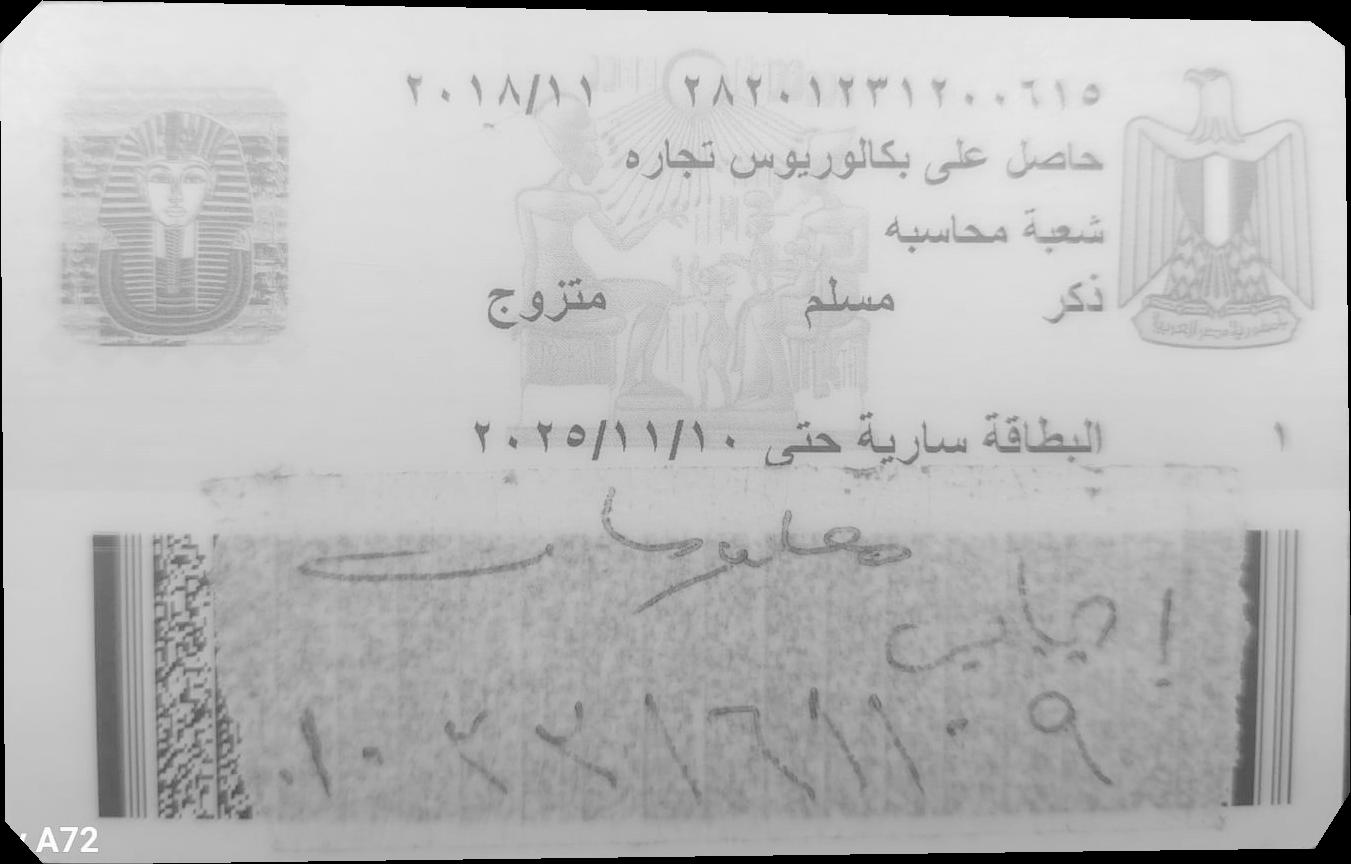 ٢٨٢٠١٢٣١٢٠٠٦١٥ ٢٠١٨/١١
حاصل على بكالوريوس تجاره
شعبة محاسبه
ذكر مسلم متزوج
البطاقة سارية حتى ٢٠٢٥/١١/١٠
١
جمهورية مصر العربية
معلومات
A72